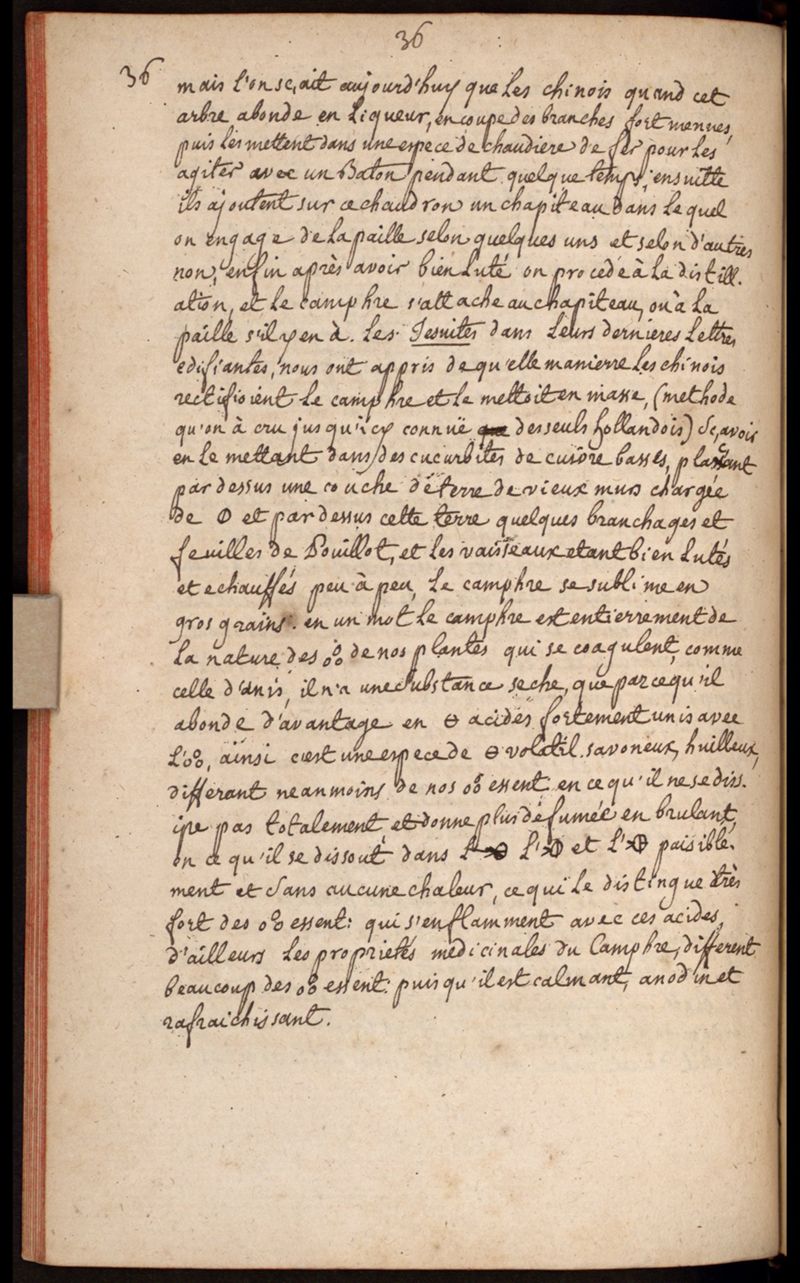 36
36
mais l'on sçait aujourd'huy que les chinois quand cet
arbre abonde en liqueur, en coupe des branches fort menues,
puis les mettent dans une espece de chaudiere de fer pour les
agiter avec un Baton pendant quelque temps; ensuitte
ils ajoutent sur ce chaudron un chapiteau dans lequel
on engage de la paille selon quelques uns et selon d'autres
non, enfin après avoir bien luté on procede à la distill.
ation, et le camphre s'attache au chapiteau, ou à la
paille s'il y en à. Les Jesuites dans leurs dernieres Lettres
edifiantes, nous ont appris de qu'elle manierre les chinois
rectifioient le camphre et le mettoit en masse, (methode
qu'on à cru jusqu'icy connuë des seuls hollandois) Sçavoir
en le mettant dans des cucurbites de cuivre basses, plaçant
par dessus une couche de terre de vieux murs chargée
de 🜕 et par dessus cette terre quelques branchages et
feuilles de Pouillot, et les vaisseaux etant bien lutés
et echauffés peu à peu, le camphre se sublime en
gros grains. en un mot le camphre est entierrement de
la nature des o°o de nos plantes qui se coagulent, comme
celle d'anis, il n'a une substance seche, que parce qu'il
abonde d'avantage en 🜔 acides fortement unis avec
l'o°o, ainsi c'est une espece de 🜔 volatil savoneux, huilleux,
differant neanmoins de nos o°o essent. en ce qu'il ne se diss.
ipe pas totalement, et donne plus de fumée en brulant,
en ce qu'il se dissout dans l'🜅 et l'🜆 paisible.
ment et sans aucune chaleur, ce qui le distingue très
fort des o°o essent: qui s'enflamment avec ces acides,
d'ailleurs les proprietés medicinales du Camphre, different
beaucoup des o°o essent. puis qu'il est calmant, anodin et
rafraichissant.